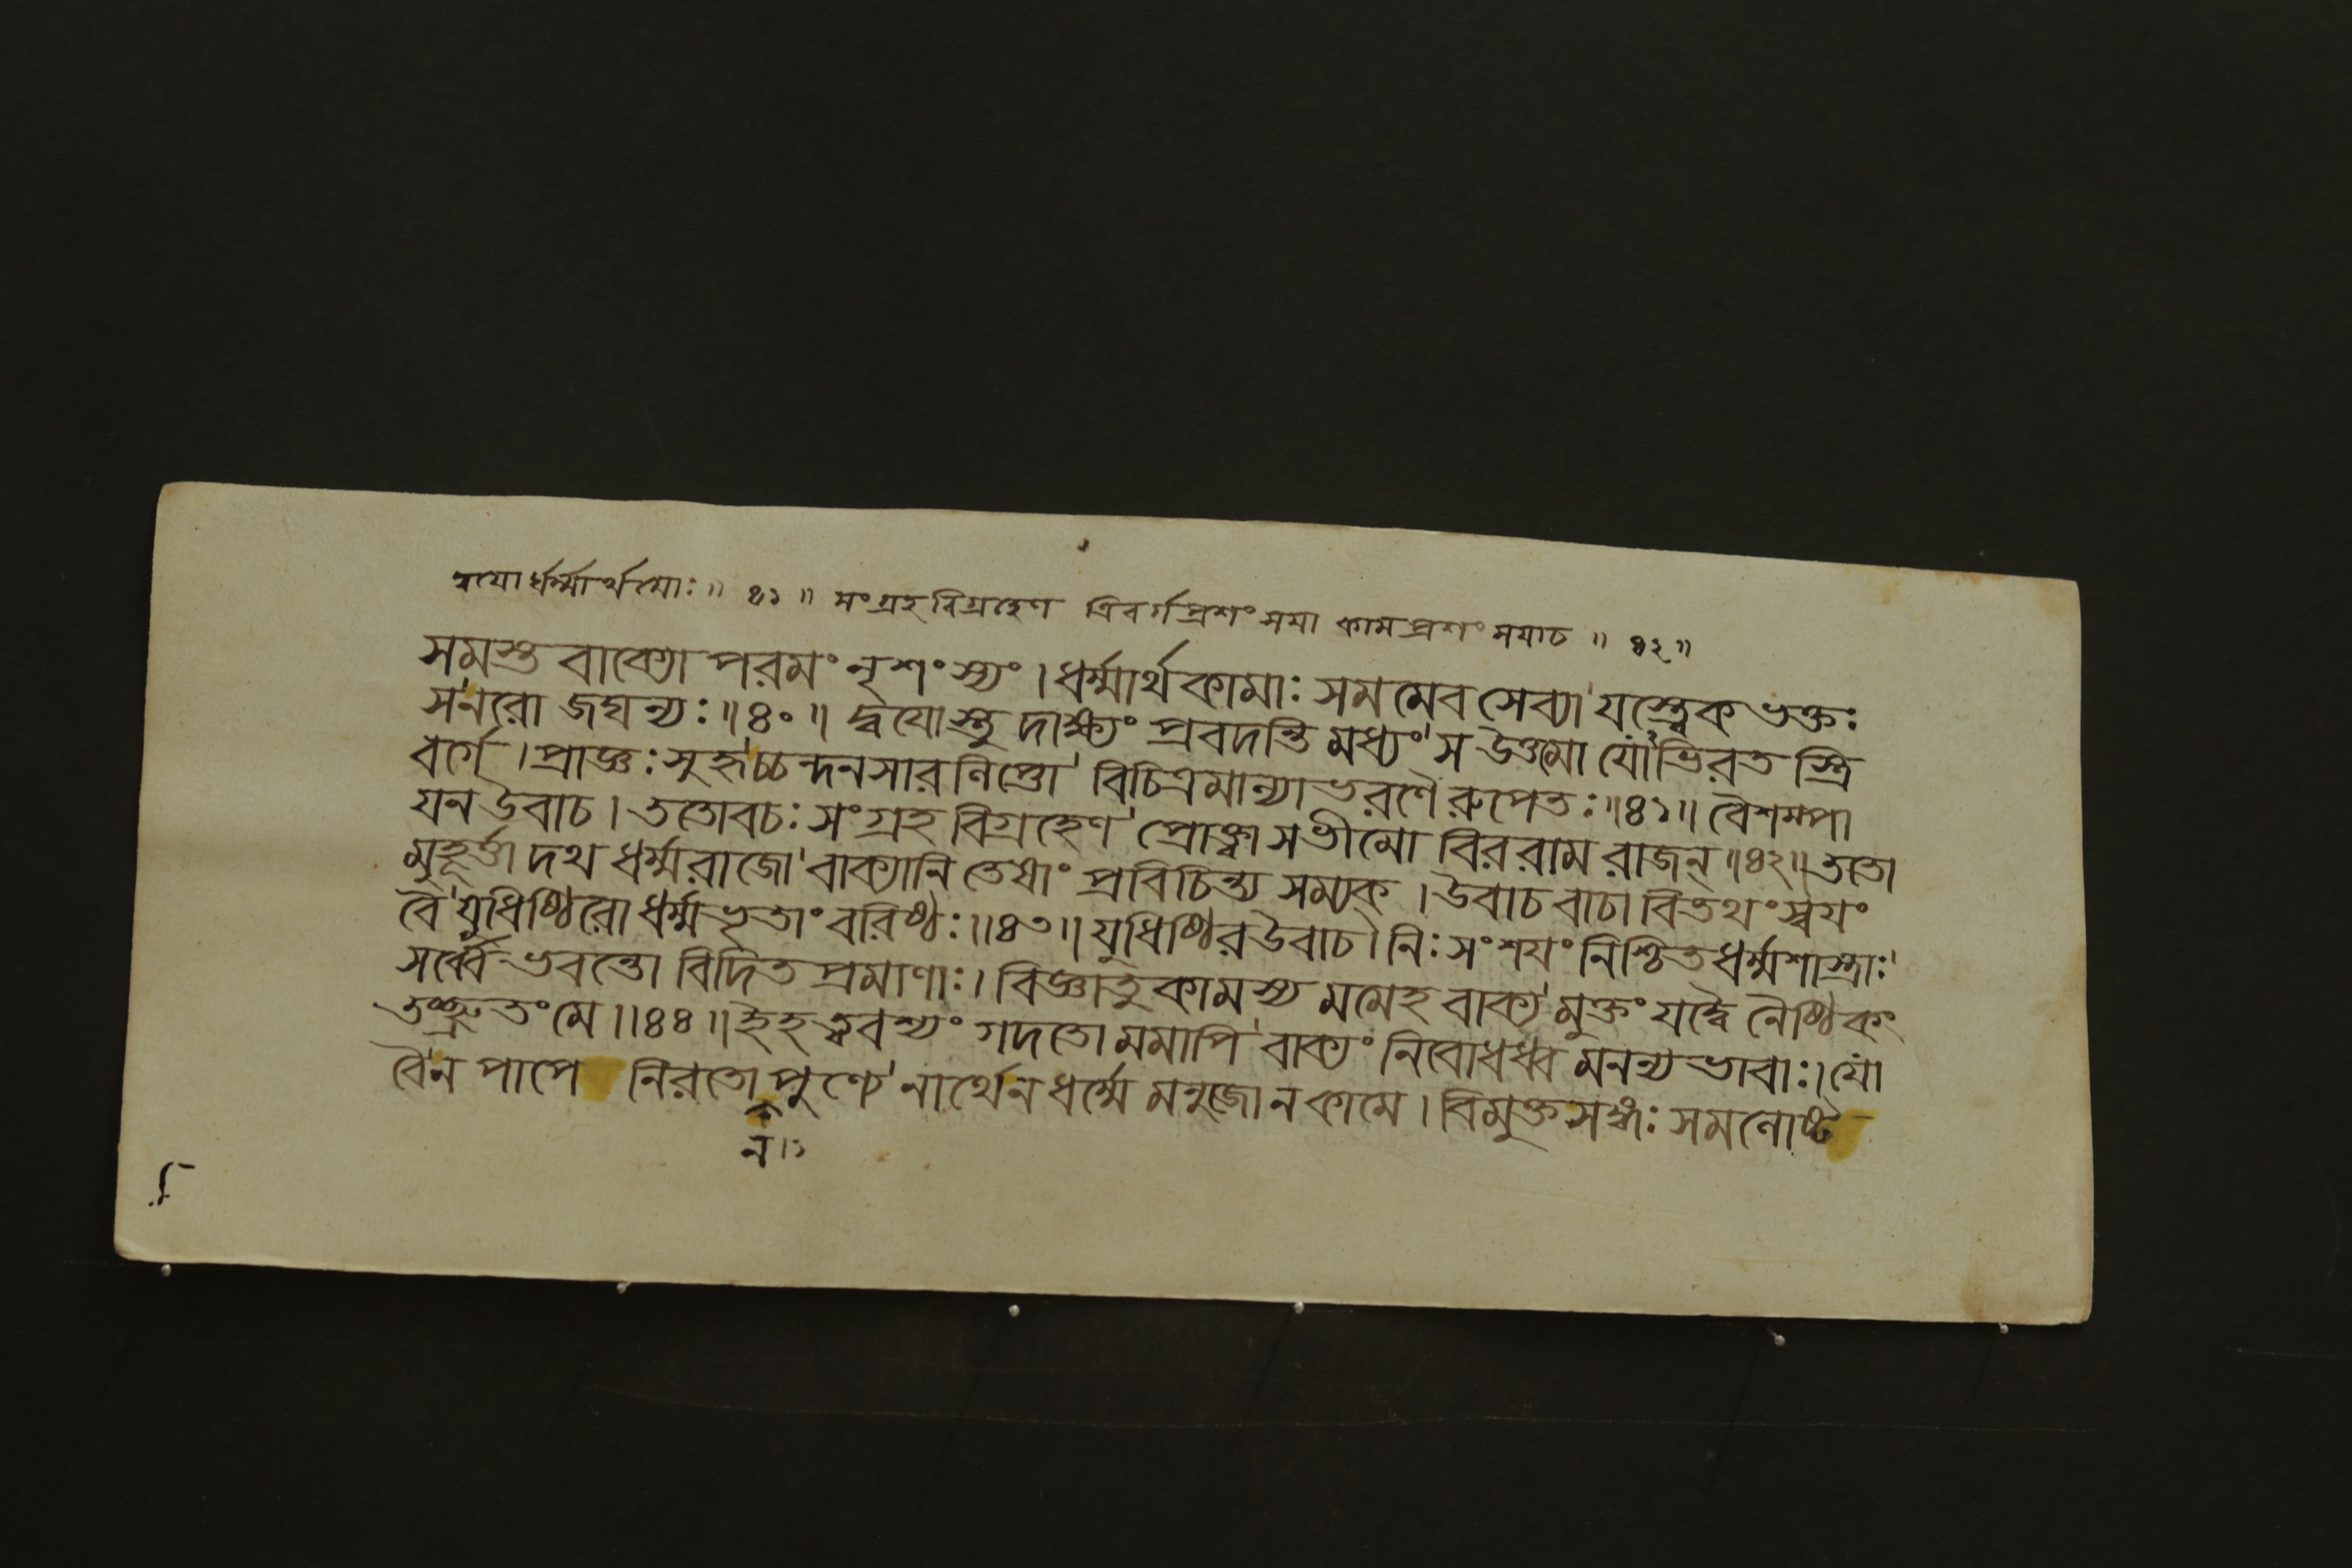 ত্রয়োর্ধর্ম্মার্থয়োঃ॥ ৪১॥ সংগ্রহবিগ্রহেণ ত্রিবর্গপ্রশংসয়া কামপ্রশংসয়াচ॥ ৪২॥
সমস্তবাক্যো পরমং নৃশংস্যং। ধর্ম্মার্থকামাঃ সমমেব সেব্যা যস্ত্বেকভক্তঃ
সনরো জঘন্যঃ॥৪০॥ দ্বয়োস্তু দাক্ষ্যং প্রবদন্তি মধ্যং স উত্তমো যোভিরত স্ত্রি
বর্গে। প্রাজ্ঞঃ সুহৃচ্চন্দনসারলিপ্তো বিচিত্রমাল্যাভরণৈরুপেতঃ॥৪১॥ বৈশম্পা
য়ন উবাচ। ততোবচঃ সংগ্রহ বিগ্রহেণ প্রোক্ত্বা সভীমো বিররাম রাজন্॥৪২॥ ততো
মুহূর্ত্তাদথ ধর্ম্মরাজো বাক্যানি তেষাং প্রবিচিন্ত্য সম্যক্। উবাচ বাচা বিতথং স্বয়ং
বৈ যুধিষ্ঠিরো ধর্ম্মভৃতাং বরিষ্ঠঃ॥৪৩॥ যুধিষ্ঠির উবাচ। নিঃসংশয়ং নিশ্চিতধর্ম্মশাস্ত্রাঃ
সর্ব্বে ভবন্তো বিদিতপ্রমাণাঃ। বিজ্ঞাতুকামস্য মমেহ বাক্যমুক্তং যদ্বৈ নৈষ্ঠিকং
তচ্ছ্রুতং মে॥৪৪॥ ইহ ত্ববশ্যং গদতো মমাপি বাক্যং নিবোধধ্বমনন্যভাবাঃ। যো
বৈন পাপে নিরতো পুণ্যে নার্থেন ধর্ম্মে মনুজোন কামে। বিমুক্তসঙ্গঃ সমলোষ্ট
ন।১